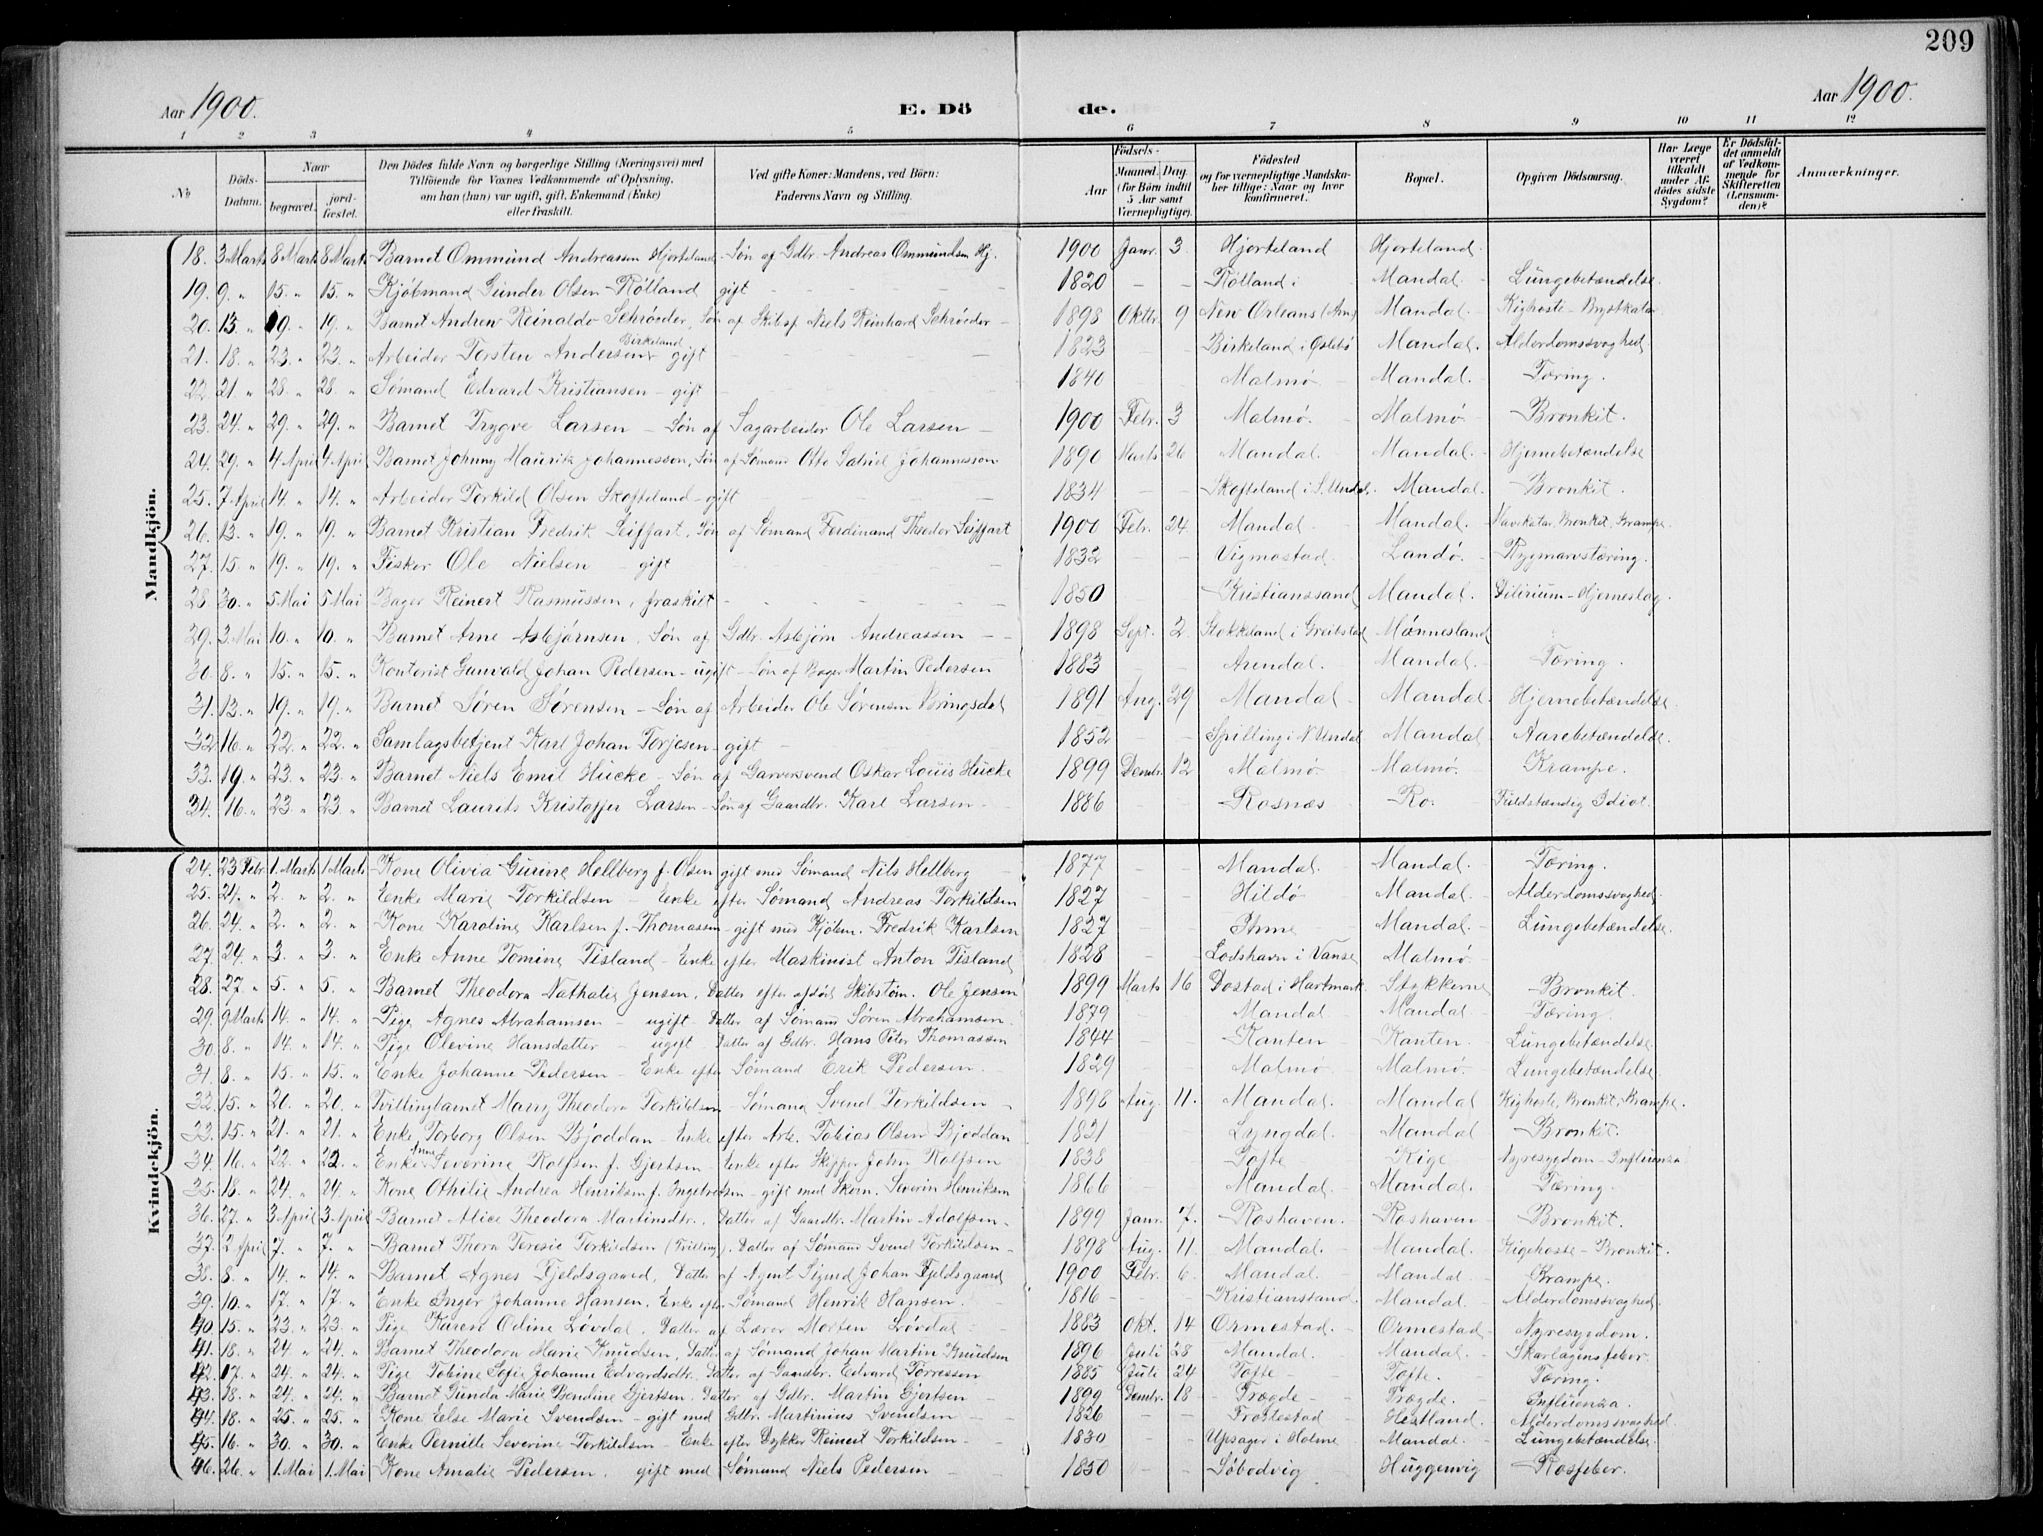 209
Aar 1900. E. Dö de. Aar 1900.
1 2 3 4 5 6 7 8 9 10 11 12
No Döds-Datum. Naar begravet. jordfæstet. Den Dödes fulde Navn og borgerlige Stilling (Næringsvei) med Tilföiende for Voxnes Vedkommende af Oplysning, om han (hun) var ugift, gift, Enkemand (Enke) eller fraskilt. Ved gifte Koner: Mandens, ved Börn: Faderens Navn og Stilling. Födsels- Aar Maaned. Dag. (for Börn indtil 5 Aar samt Værnepligtige). Födested og for værnepligtige Mandskaber tillige: Naar og hvor konfirmeret. Bopæl. Opgiven Dödsaarsag. Har Læge været tilkaldt under Afdödes sidste Sygdom? Er Dödsfaldet anmeldt af Vedkommende for Skifteretten (Lensmanden)? Anmærkninger.
Mandkjön.
18. 3 Marts 8 Marts 8 Marts Barnet Ommund Andreassen Hjorteland - Søn af Gdbr. Andreas Ommundsen Hj. 1900 Janr. 3 Hjorteland Hjorteland
19. 9. " 15. " 15. " Kjøbmand Gunder Olsen Røtland gift 1820 Røtland i Mandal. Lungebetændelse
20. 13 " 19. " 19. " Barnet Andrew Reinaldo Schrøder, Søn af Skibsf. Niels Reinhard Schrøder 1898 Oktbr. 9 New Orleans (Am) Mandal Kighoste - Brystkatar
21. 18. " 23. " 23. " Arbeider Torsten Andersen Birkeland gift 1823 Birkeland i Øslebø Mandal. Alderdomssvaghed
22. 21 " 28 " 28. " Sømand Edvard Kristiansen - gift 1840 Malmø Mandal. Tæring.
23. 24. " 29. " 29. " Barnet Trygve Larsen - Søn af Sagarbeider Ole Larsen 1900 Febr. 3 Malmø. Malmø Bronkit.
24. 29. " 4 April 4 April Barnet Johnny Mauritz Johannessen, Søn af Sømand Otto Gabriel Johannessen 1890 Marts 26 Mandal. Mandal. Hjernebetændelse
25. 7 April 14. " 14. " Arbeider Torkild Olsen Skofteland - gift 1834 Skofteland i S. Undal. Mandal Bronkit.
26. 13. " 19. " 19. " Barnet Kristian Fredrik Seiffart, Søn af Sømand Ferdinand Theodor Seiffart 1900 Febr. 24 Mandal Mandal. Mavekatar, Bronkit, Krampe
27. 15. " 19. " 19. " Fisker Ole Nielsen - gift 1832 Vigmostad. Landø. Rygmarvstæring.
28. 30. " 5 Mai 5 Mai Bager Reinert Rasmussen, fraskilt 1850 Kristianssand Mandal. Dilirium - Hjerneslag.
29. 3 Mai 10. " 10. " Barnet Arne Asbjørnsen, Søn af Gdbr. Asbjørn Andreassen 1898 Sept. 2 Stokkeland i Greibstad Mønnesland
30. 8. " 15. " 15. " Kontorist Gunvald Johan Pedersen - ugift - Søn af Bager Martin Pedersen 1883 Arendal. Mandal. Tæring.
31. 13. " 19. " 19. " Barnet Søren Sørensen - Søn af Arbeider Ole Sørensen Bringsdal 1891 Aug. 29 Mandal Mandal. Hjernebetændelse.
32. 16. " 22. " 22. " Samlagsbetjent Karl Johan Torjesen - gift 1852 Spilling i N Undal Mandal Aarebetændelse.
33. 19. " 23. " 23. " Barnet Niels Emil Hücke - Søn af Garversvend Oskar Louis Hücke 1899 Decmbr. 12 Malmø Malmø. Krampe.
34. 16. " 23. " 23. " Barnet Laurits Kristoffer Larsen - Søn af Gaardbr. Karl Larsen 1886 Rosnæs Ro. Fuldstændig Idiot.
Kvindekjön.
24. 23 Febr. 1. Marts 1 Marts Kone Olivia Gurine Hellberg f. Olsen gift med Sømand Nils Hellberg 1877 Mandal. Mandal. Tæring.
25. 21. " 2. " 2. " Enke Marie Torkildsen - Enke efter Sømand Andreas Torkildsen 1827 Hildø Mandal. Alderdomssvaghed
26. 24. " 2. " 2. " Kone Karoline Karlsen f. Thomassen - gift med Kjøbm. Fredrik Karlsen 1827 Ihme Mandal. Lungebetændelse.
27. 24. " 3. " 3. " Enke Anne Tomine Tisland - Enke efter Maskinist Anton Tisland 1828 Lodshavn i Vanse Malmø
28. 27. " 5. " 5. " Barnet Theodora Nathalie Jensen. Datter efter afdød Skibstøm. Ole Jensen 1899 Marts 16 Dostad i Hartmark Stykkerne Bronkit.
29. 9 Marts 14. " 14. " Pige Agnes Abrahamsen - ugift Datter af Sømand Søren Abrahamsen. 1879 Mandal Mandal. Tæring.
30. 8. " 14. " 14. " Pige Olevine Hansdatter - ugift - Datter af Gdbr. Hans Peter Thomassen 1844 Kanten Kanten. Lungebetændelse.
31. 8. " 15. " 15. " Enke Johanne Pedersen - Enke efter Sømand Erik Pedersen 1829 Malmø Malmø. Lungebetændelse
32. 15. " 20. " 20. " Tvillingbarnet Marry Theodora Torkildsen - Sømand Svend Torkildsen 1898 Aug. 11. Mandal. Mandal Kighoste, Bronkit, Krampe.
33. 15. " 21. " 21. " Enke Torborg Olsen Bjoddan - Enke efter Arb. Tobias Olsen Bjoddan 1821 Lyngdal. Mandal Bronkit.
34. 16. " 22 " 22. " Enke Severine Rolfsen f. Gjertsen - Enke efter Skipper John Rolfsen 1838 Tofte Kige Nyresygdom - Influenza
35. 18. " 24. " 24. " Kone Othilie Andrea Henriksen f. Ingebretsen - gift med Skom. Severin Henriksen 1866 Mandal. Mandal. Tæring.
36. 27. " 3 April 3 April Barnet Alice Theodora Martinsdtr. Datter af Gaardbr. Martin Adolfsen 1899 Janr. 7. Roshaven. Roshaven Bronkit.
37. 2 April 7. " 7. " Barnet Thora Teresie Torkildsen (Tvilling). Datter af Sømand Svend Torkildsen 1898 Aug. 11. Mandal. Mandal. Kigehoste - Bronkit.
38. 8. " 14. " 14. " Barnet Agnes Fjeldsgaard, Datter af Agent Sigurd Johan Fjeldsgaard 1900 Febr. 6. Mandal. Mandal. Krampe.
39. 10. " 17. " 17. " Enke Inger Johanne Hansen. Enke efter Sømand Henrik Hansen. 1816 Kristianssand. Mandal. Alderdomssvaghed.
40 15. " 23. " 23. " Pige Karen Odine Løvdal. Datter af Lærer Morten Løvdal 1883 Okt. 14 Ormestad. Ormestad Nyresygdom.
41. 18. " 24. " 24. " Barnet Theodora Marie Knudsen, Datter af Sømand Johan Martin Knudsen 1896 Juli 28 Mandal. Mandal. Skarlagensfeber.
42. 17. " 24. " 24. " Pige Tobine Sofie Johanne Edvardsdtr. Datter af Gaardbr. Edvard Torressen 1885 Juli 24 Tofte Tofte. Tæring.
43. 18. " 24. " 24. " Barnet Gunda Marie Bendine Gjertsen. Datter af Gdbr. Martin Gjertsen 1899 Decmbr. 18 Trægde Trægde. Influenza.
44. 18. " 25. " 25. " Kone Else Marie Svendsen - gift med Gdbr. Martinius Svendsen 1826 Frøilestad Hestland. Alderdomssvaghed.
45. 16. " 30. " 30. " Enke Pernille Severine Torkildsen - Enke efter Dykker Reinert Torkildsen 1830 Upsager i Holme Mandal. Lungebetændelse.
46. 26. " 1. Mai 1. Mai Kone Amalie Pedersen. gift med Sømand Niels Pedersen 1850 Søbodvig Huggenvig Rosfeber.